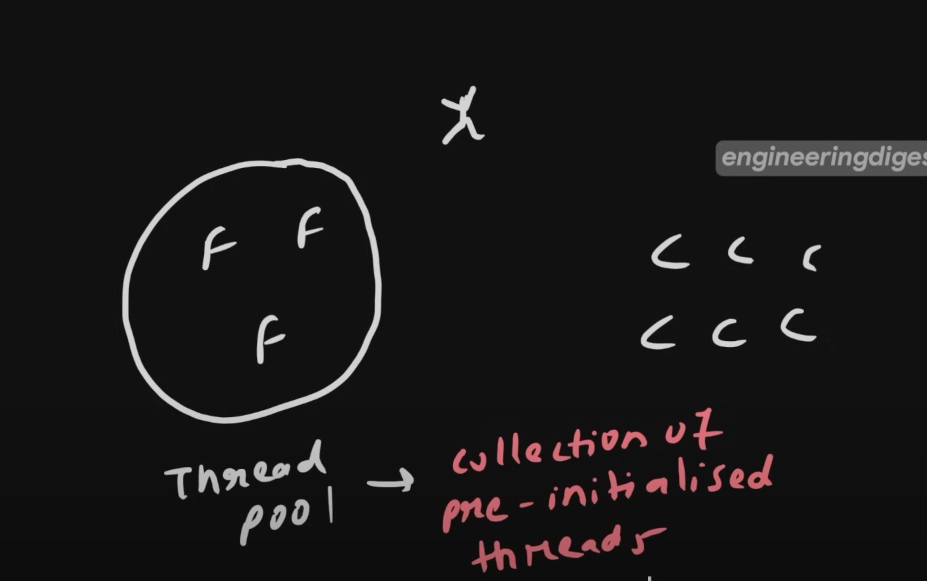 engineeringdiges
F F
C C C
F
C C C
Thread
pool
→ collection of
pre-initialised
threads